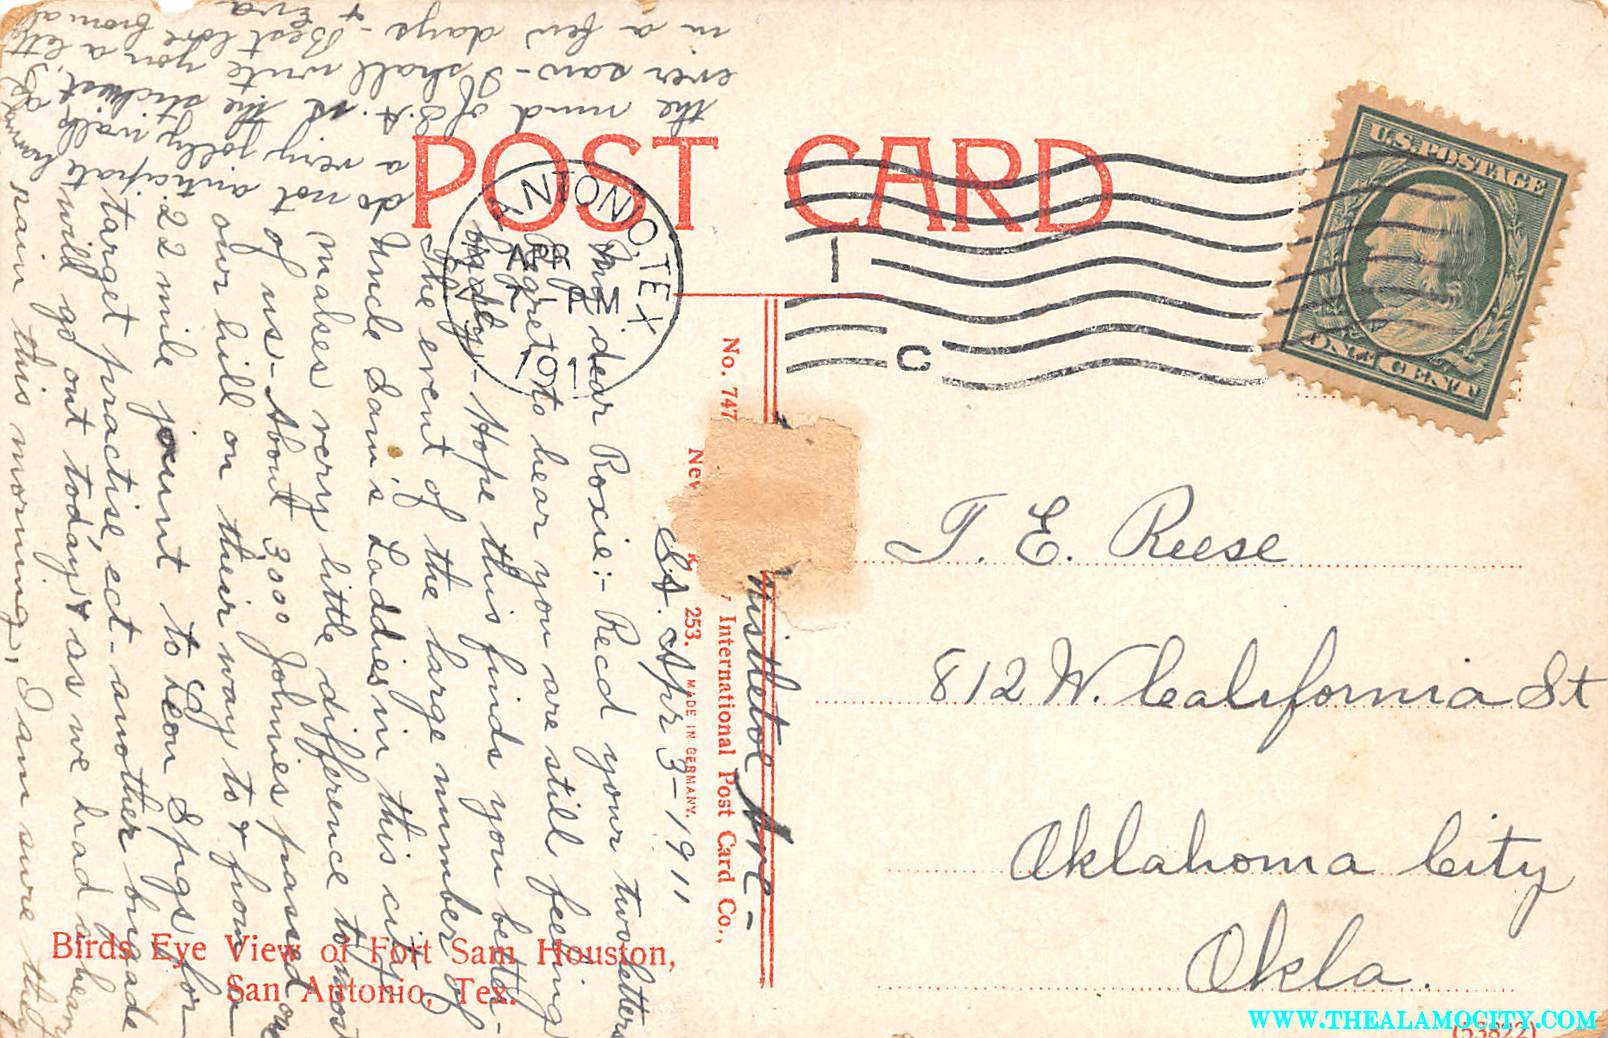 POST CARD
ANTONIO, TEX
APR
7 - PM
1911
1
C
U.S. POSTAGE
ONE CENT
T. E. Reese
812 W. California St
Oklahoma City
Okla.
No. 747
International Post Card Co.,
New
253.
MADE IN GERMANY.
Birds Eye View of Fort Sam Houston,
San Antonio, Tex.
(53822)
WWW.THEALAMOCITY.COM
Mistletoe Ave -
S.A. Apr 3 - 1911
dear Roxie:- Recd your two letters
regret to hear you are still feeling
badly - Hope this finds you better -
The event of the large number of
Uncle Sam's Laddies in this city
makes very little difference to most
of us - About 3000 Johnies passed on
our hill on their way to & from a
22 mile jount to Leon Spgs for
target practise, ect - another brigade
will go out today & as we had a heavy
rain this morning, I am sure they
do not anticipate
a very jolly walk as
the mud of S.A. is the stickiest I
ever saw - I shall write you a letter
in a few days - Best love from all
& Eva